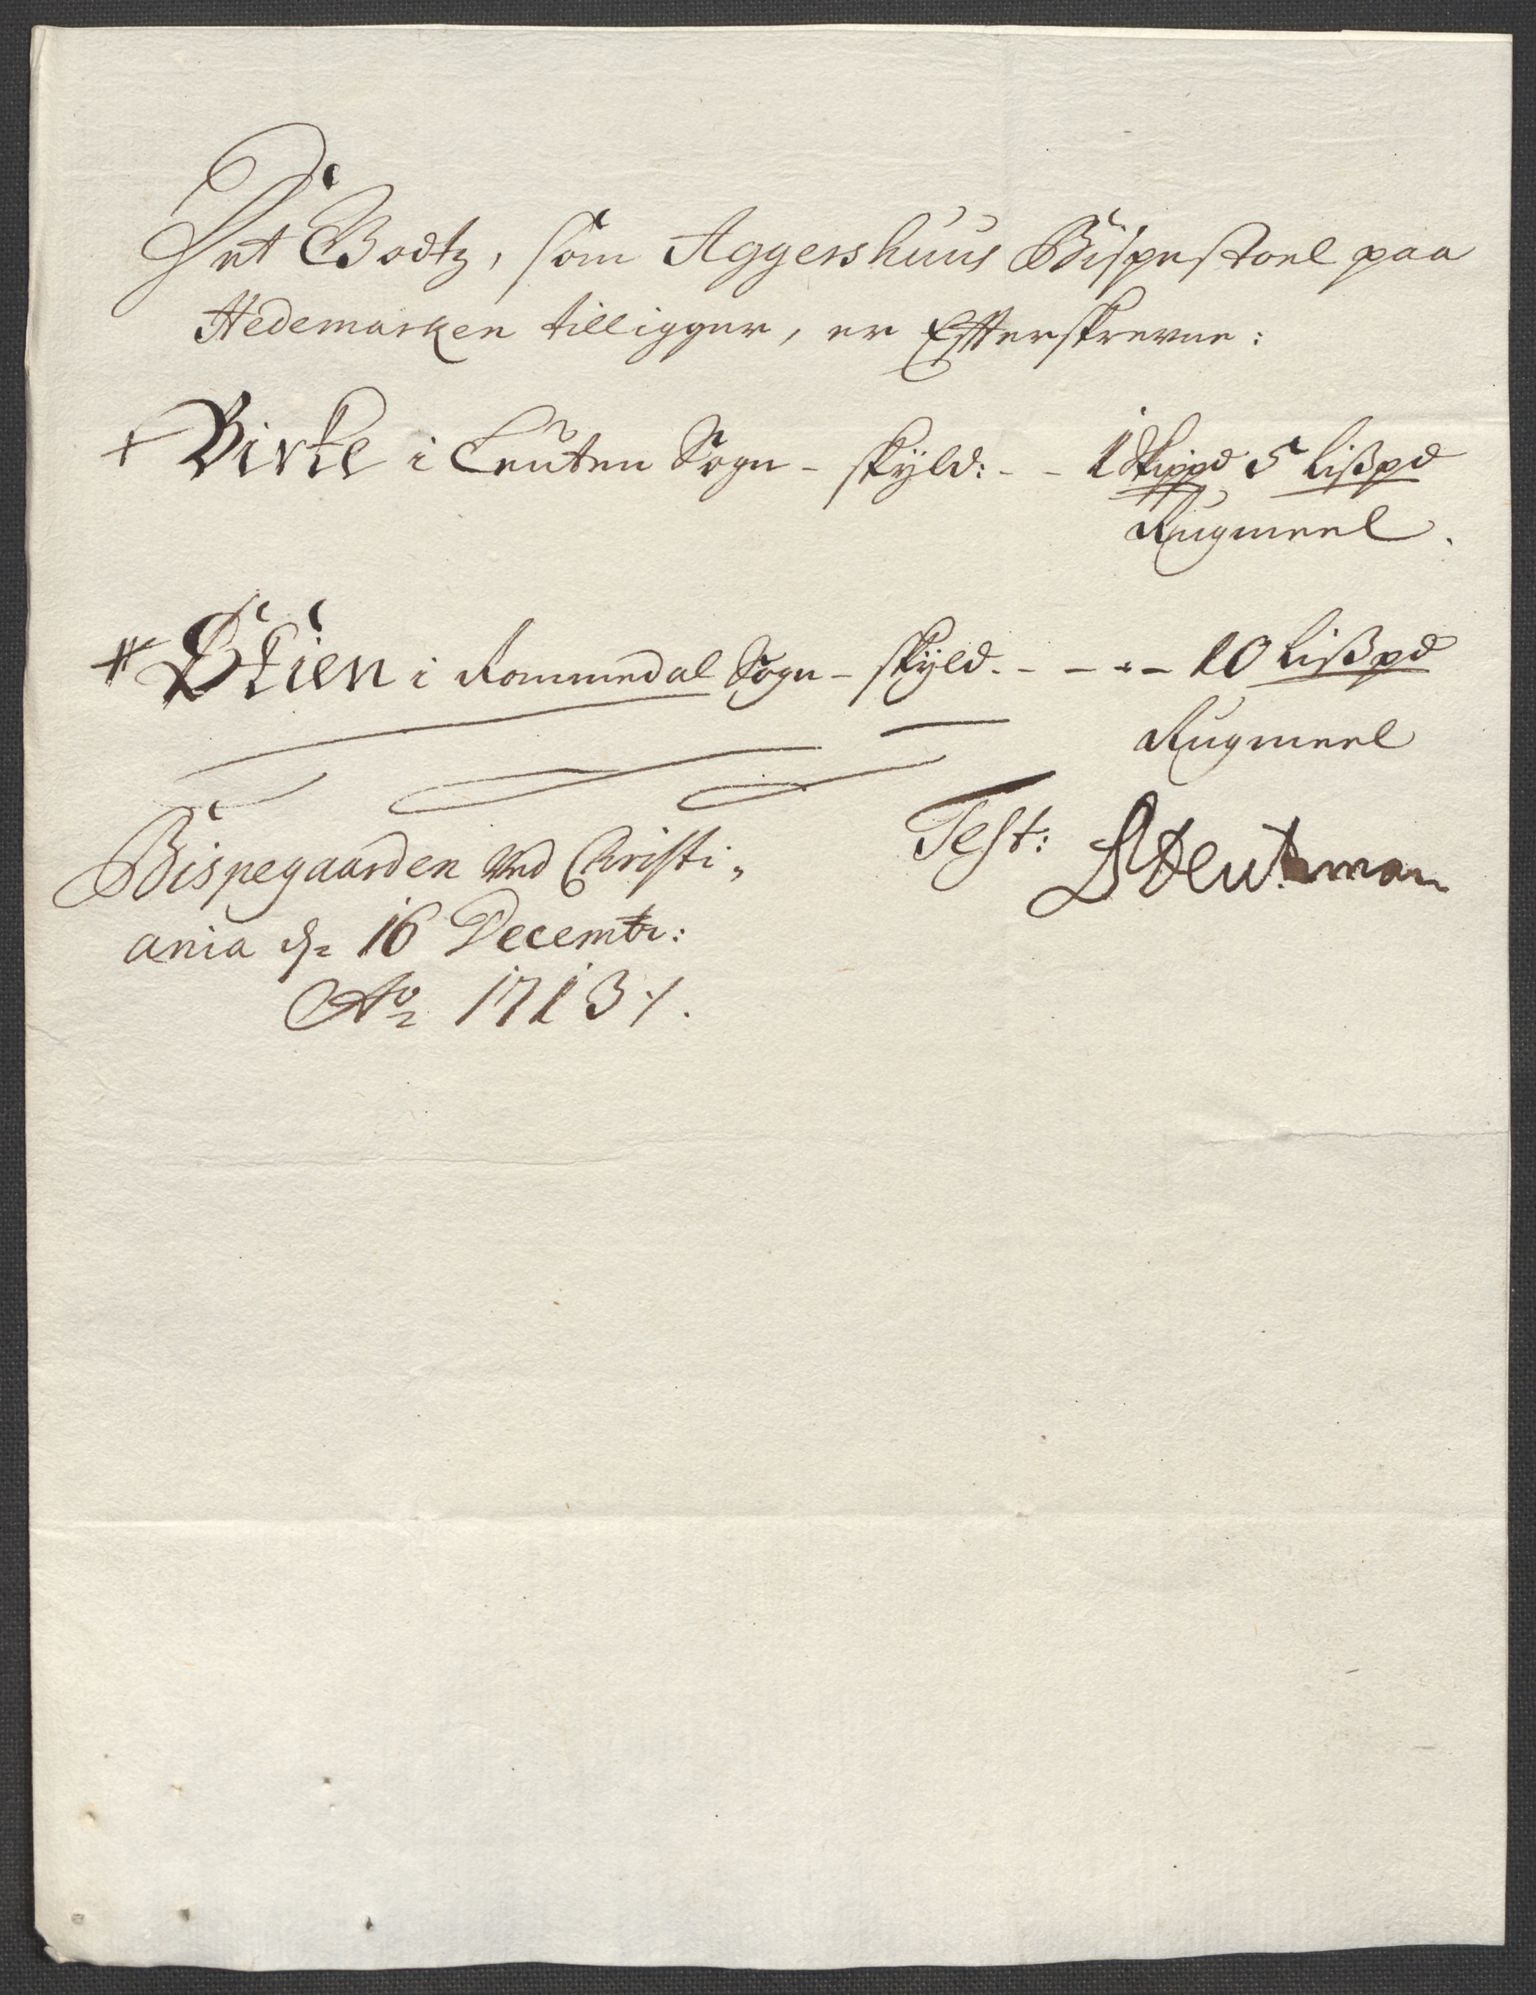 Det Godtz, som Aggershuus Bispestoel paa
Hedemarken tilligger, er Effterskrevne:
+ Birke i Leuten Sogn - skÿld: - - 1 Skippd 5 Lißpd
Rugmeel.
# Stien i Rommedal Sogn - skÿld. - - - - 10 Lißpd
Rugmeel
Bispegaarden ved Christi-
ania d. 16 Decembr:
Ao 1713 /.
Test: